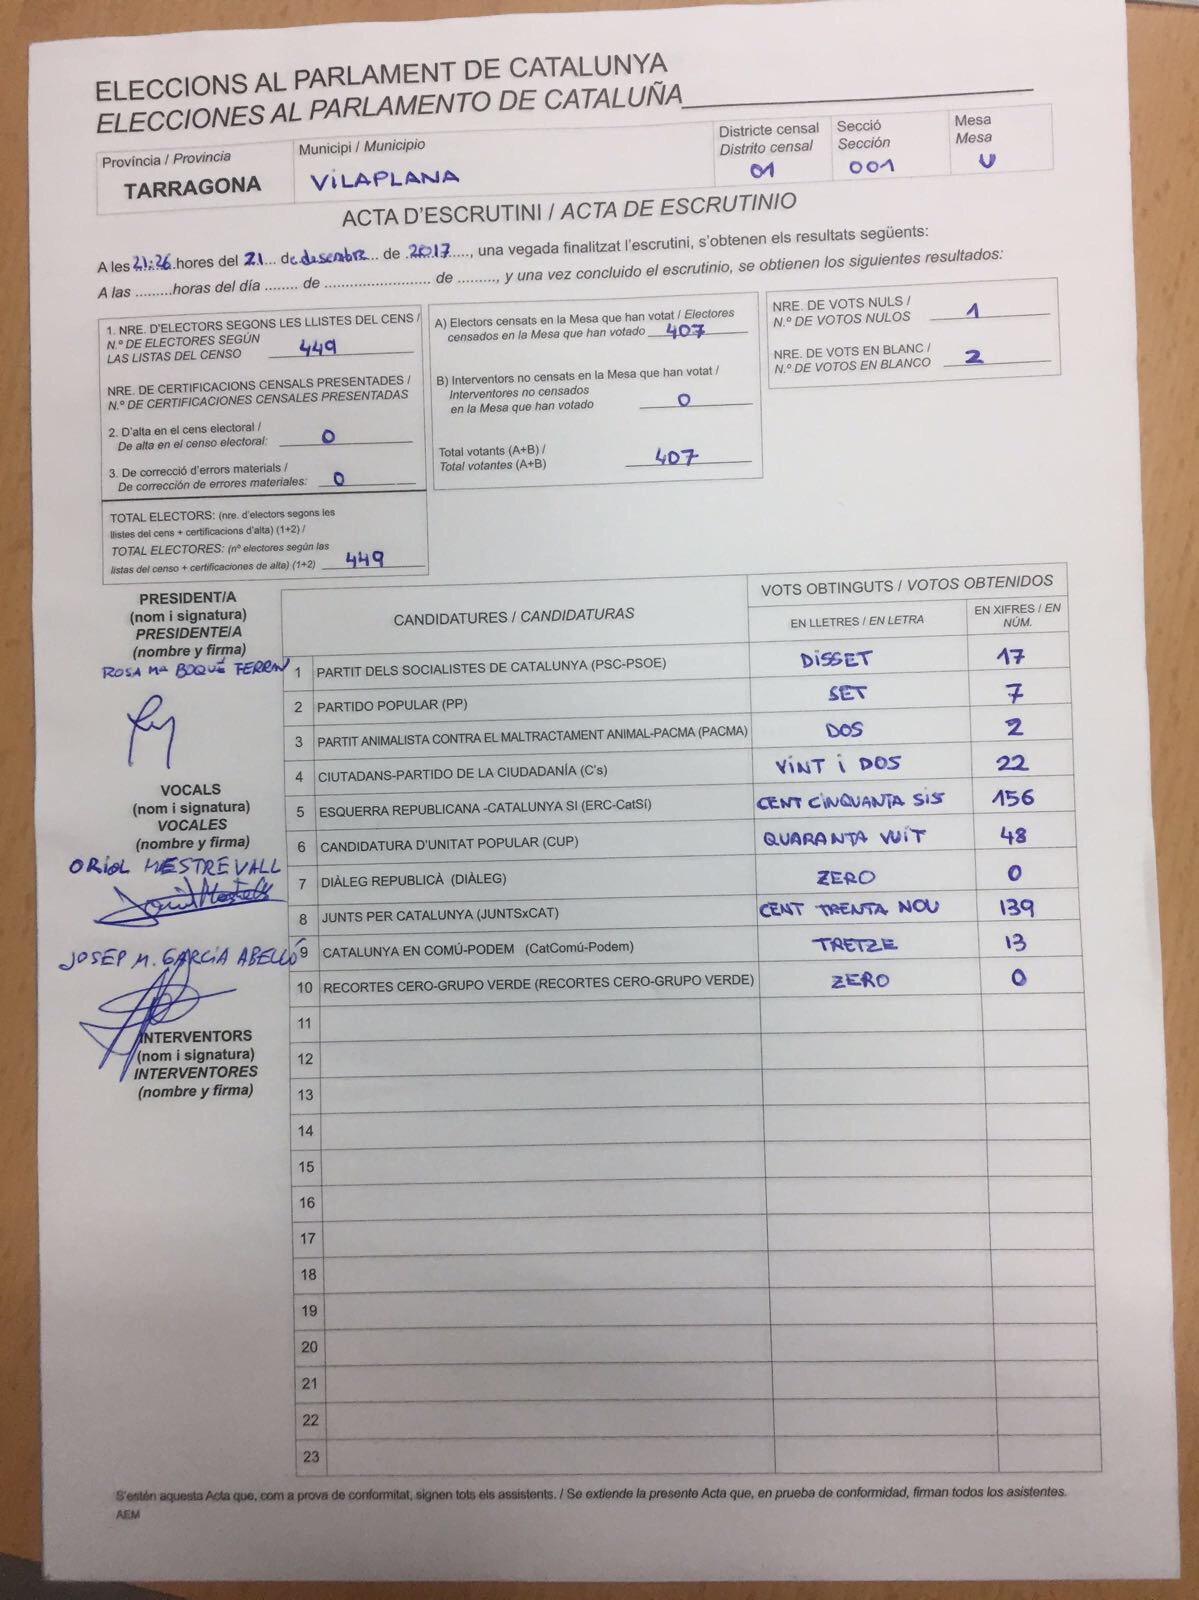 ELECCIONS AL PARLAMENT DE CATALUNYA
ELECCIONES AL PARLAMENTO DE CATALUÑA
Província / Provincia
TARRAGONA
Municipi / Municipio
VILAPLANA
Districte censal
Distrito censal
01
Secció
Sección
001
Mesa
Mesa
U
ACTA D'ESCRUTINI / ACTA DE ESCRUTINIO
A les 21:26 hores del 21 de desembre de 2017, una vegada finalitzat l'escrutini, s'obtenen els resultats següents:
A las .........horas del día ........ de .......................... de ........., y una vez concluido el escrutinio, se obtienen los siguientes resultados:
1. NRE. D'ELECTORS SEGONS LES LLISTES DEL CENS /
N.º DE ELECTORES SEGÚN
LAS LISTAS DEL CENSO 449
NRE. DE CERTIFICACIONS CENSALS PRESENTADES /
N.º DE CERTIFICACIONES CENSALES PRESENTADAS
2. D'alta en el cens electoral /
De alta en el censo electoral: 0
3. De correcció d'errors materials /
De corrección de errores materiales: 0
TOTAL ELECTORS: (nre. d'electors segons les
llistes del cens + certificacions d'alta) (1+2) /
TOTAL ELECTORES: (nº electores según las
listas del censo + certificaciones de alta) (1+2) 449
A) Electors censats en la Mesa que han votat / Electores
censados en la Mesa que han votado 407
B) Interventors no censats en la Mesa que han votat /
Interventores no censados
en la Mesa que han votado 0
Total votants (A+B) /
Total votantes (A+B) 407
NRE. DE VOTS NULS /
N.º DE VOTOS NULOS 1
NRE. DE VOTS EN BLANC /
N.º DE VOTOS EN BLANCO 2
PRESIDENT/A
(nom i signatura)
PRESIDENTE/A
(nombre y firma)
ROSA Mª BOQUÉ FERRAN
VOCALS
(nom i signatura)
VOCALES
(nombre y firma)
ORIOL MESTRE VALL
JOSEP M. GARCIA ABELLÓ
INTERVENTORS
(nom i signatura)
INTERVENTORES
(nombre y firma)
CANDIDATURES / CANDIDATURAS
VOTS OBTINGUTS / VOTOS OBTENIDOS
EN LLETRES / EN LETRA
EN XIFRES / EN
NÚM.
1 PARTIT DELS SOCIALISTES DE CATALUNYA (PSC-PSOE) DISSET 17
2 PARTIDO POPULAR (PP) SET 7
3 PARTIT ANIMALISTA CONTRA EL MALTRACTAMENT ANIMAL-PACMA (PACMA) DOS 2
4 CIUTADANS-PARTIDO DE LA CIUDADANÍA (C's) VINT I DOS 22
5 ESQUERRA REPUBLICANA -CATALUNYA SI (ERC-CatSí) CENT CINQUANTA SIS 156
6 CANDIDATURA D'UNITAT POPULAR (CUP) QUARANTA VUIT 48
7 DIÀLEG REPUBLICÀ (DIÀLEG) ZERO 0
8 JUNTS PER CATALUNYA (JUNTSxCAT) CENT TRENTA NOU 139
9 CATALUNYA EN COMÚ-PODEM (CatComú-Podem) TRETZE 13
10 RECORTES CERO-GRUPO VERDE (RECORTES CERO-GRUPO VERDE) ZERO 0
11
12
13
14
15
16
17
18
19
20
21
22
23
S'estén aquesta Acta que, com a prova de conformitat, signen tots els assistents. / Se extiende la presente Acta que, en prueba de conformidad, firman todos los asistentes.
AEM